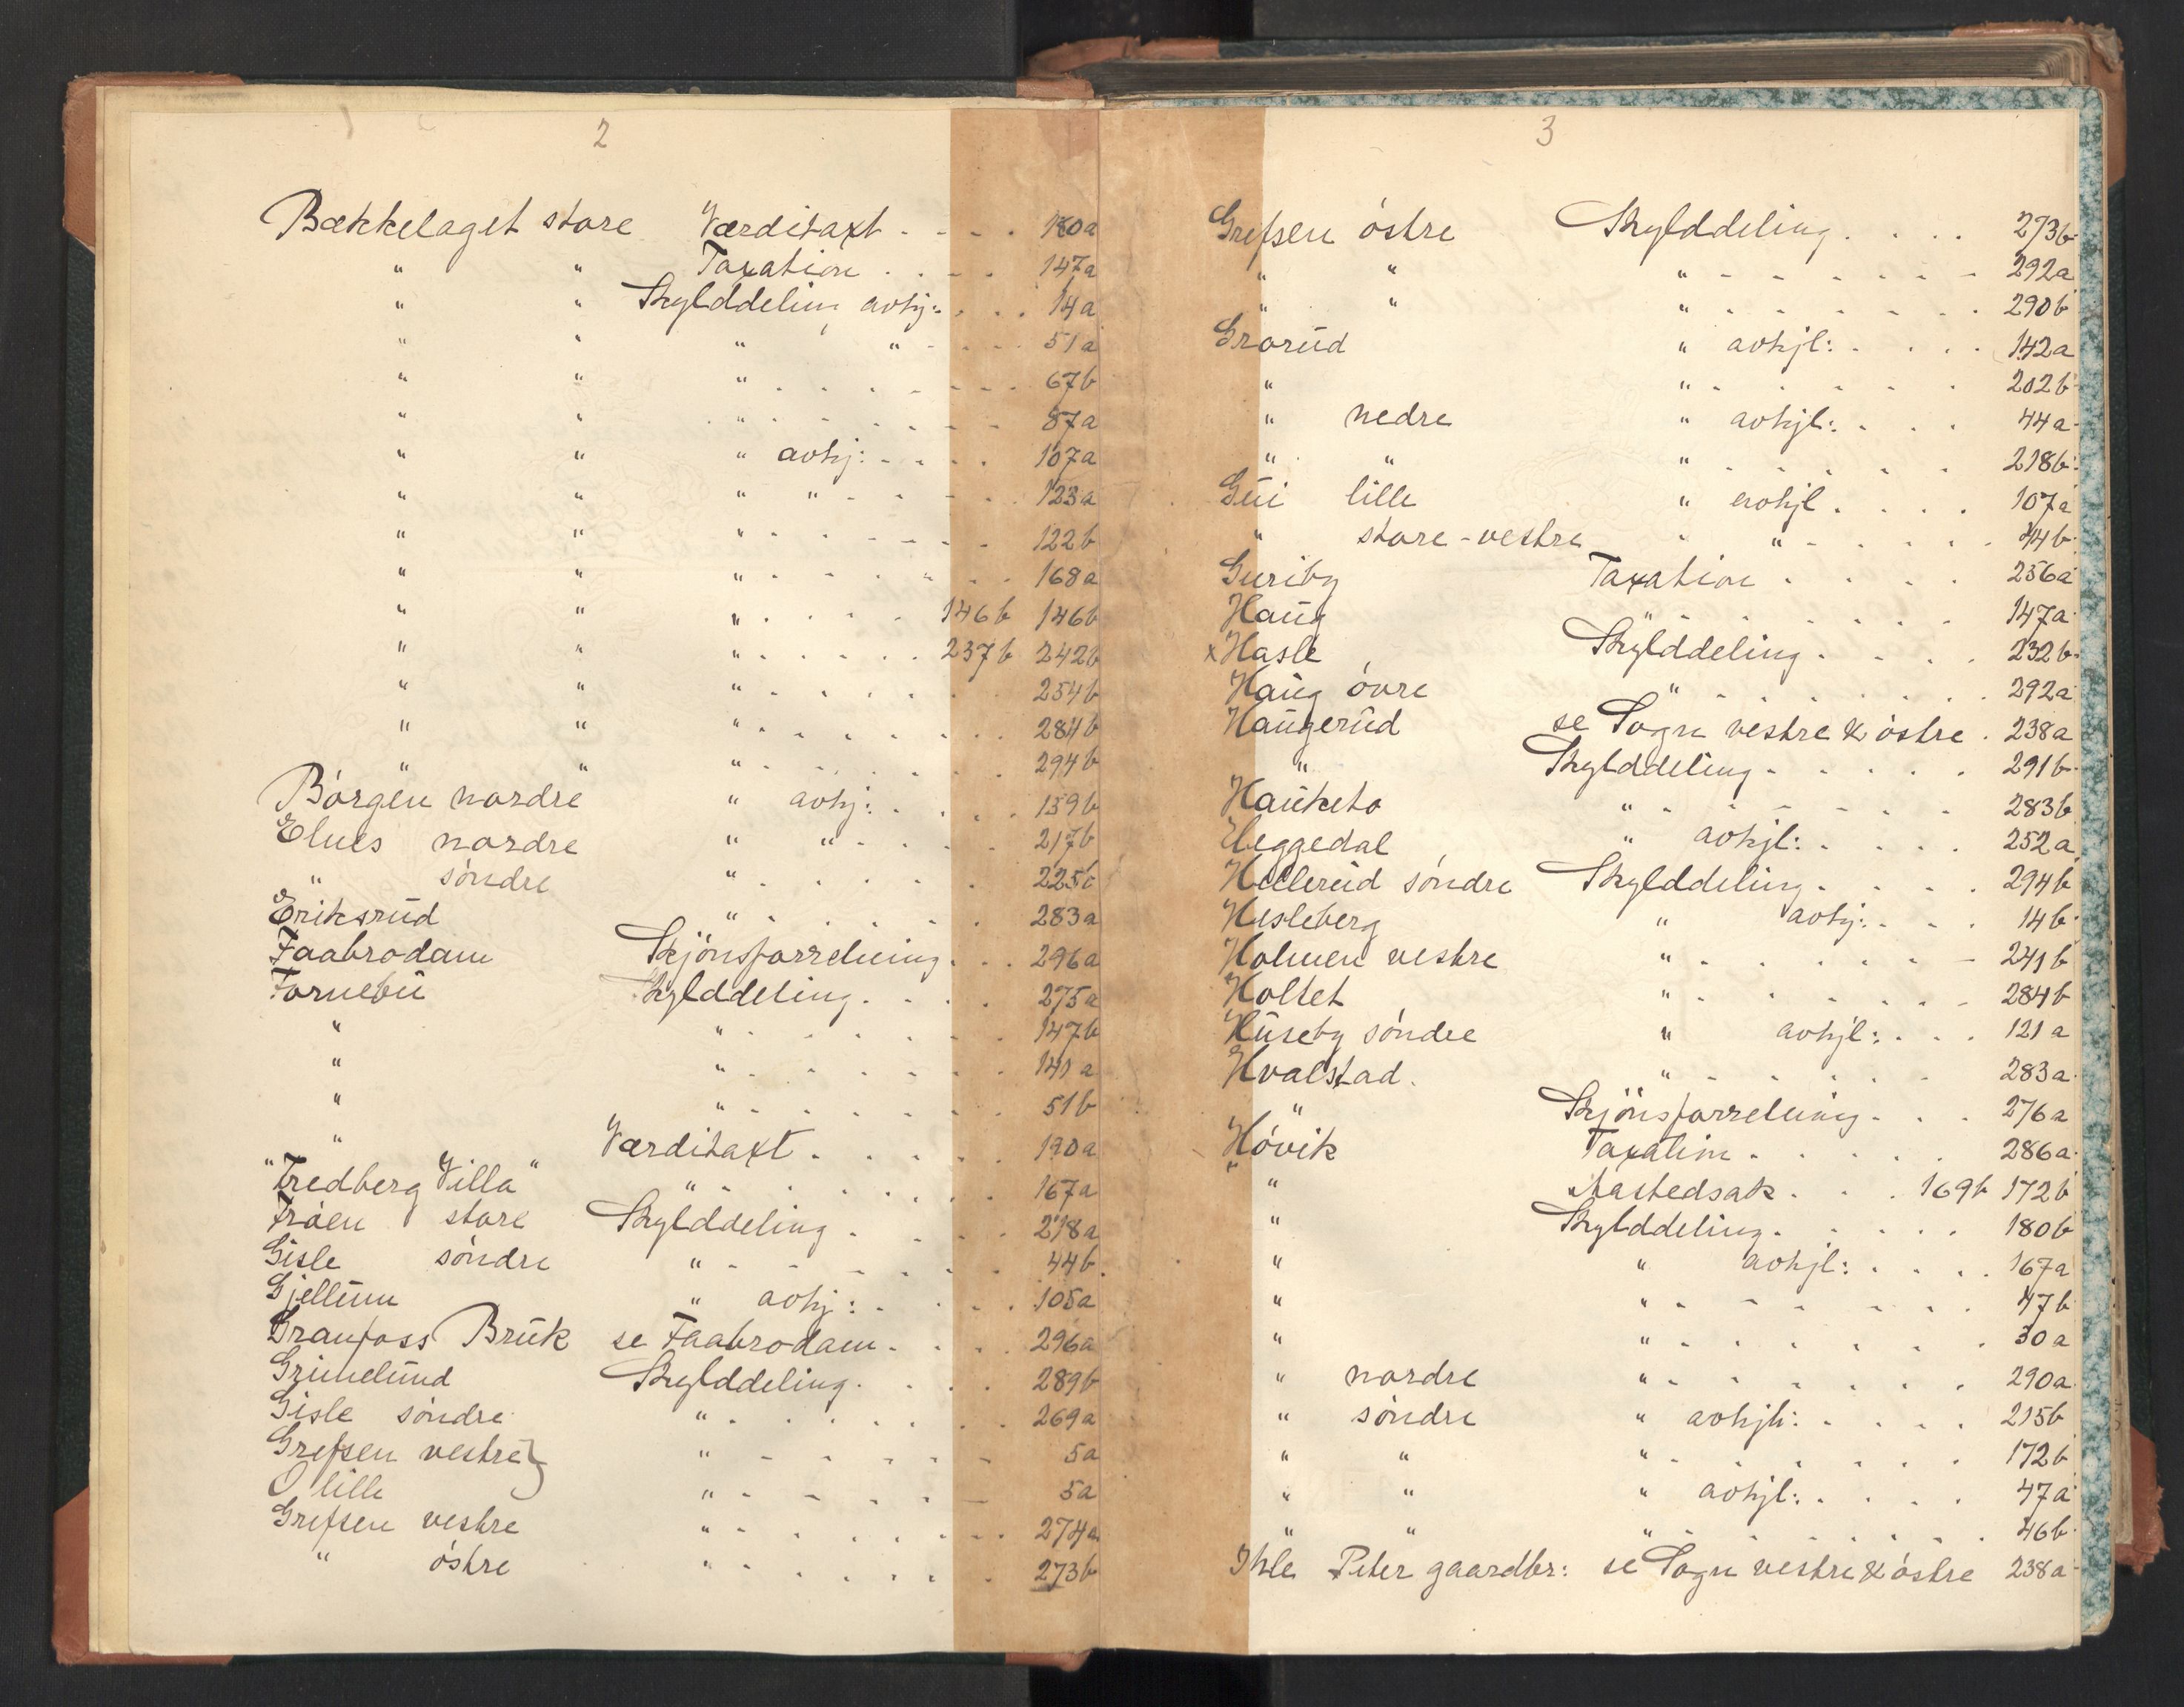 2
Bækkelaget store Værditaxt . . . . 180a
" " Taxation . . . . 147a
" " Skylddeling avhj: . . . 14a
" " " " - - - - 51a
" " " . . . . . . . 67b
" " " . . . . . . . 87a
" " " avhj: - - - . 107a
" " " " - - - - . 123a
" " " . . . . . . . 122b
" " " . . . . . . . 168a
" " " . . . . . 146b 146b
" " " . . . . . 237b 242b
" " " . . . . . . . 254b
" " " . . . . . . . 284b
" " " . . . . . . . 294b
Börgen nordre " avhj: . . . . 159b
Elnes nordre " " . . . . . 217b
" söndre " . . . . . . 225b
Eriksrud " . . . . . . 283a
Faabrodam Skjönsforretning . . . 296a
Fornebu Skylddeling . . . . 275a
" " . . . . . . . 147b
" " . . . . . . . 141a
" " . . . . . . . 51b
" Værditaxt . . . . . 190a
"Fredberg Villa" " . . . . . . . 167a
Fröen store Skylddeling . . . . . 218a
Gisle söndre " . . . . . . 44b.
Gjellum " avhj: . . . . 105a
Granfoss Bruk se Faabrodam . . . . 296a
Grimelund Skylddeling . . . . 289b
Gisle söndre " . . . . . . . 269a
Grefsen vestre } " - - - - - 5a
O lille " - - - - - 5a
Grefsen vestre " . . . . . . . 274a
" östre " . . . . . . . 273b
3
Grefsen östre Skylddeling . . . . 273b
" " " - - - - - - - 292a
" " " . . . . . . . 290b
Grorud " avhjl: . . . . 142a
" " . . . . . . 202b
" nedre " avhjl: . . . 44a
" " " . . . . . . 218b
Gui lille " avhjl . . . . 107a
" store-vestre " " - . . . . 44b
Guriby Taxation . . . . 256a
Haug " . . . . . . . 147a
x Hasle Skylddeling . . . . 232b
Haug övre " . . . . . . . 292a
Haugerud se Sogn vestre & östre . 238a
" Skylddeling . . . . . 291b
Hauketo " . . . . . . . 283b
Heggedal " avhjl: . . . . 252a
Hellerud söndre Skylddeling . . . . 294b
Hesleberg " avhj: . . . 14b
Holmen vestre " . . . . . . - 241b
Holtet " . . . . . . - 284b
Huseby söndre " avhjl: . . . 121a
Hvalstad. " - . . . . . 283a
" Skjönsforretning . . . 276a
Hövik Taxation . . . . . 286a
" Aastedsak . . . 169b 172b
" Skylddeling . . . . . 180b
" " avhjl: . . . . 167a
" " . . . . . . . 47b
" " . . . . . . . 30a
" nordre " . . . . . . . 290a
" söndre " avhjl: . . . . 215b
" " " . . . . . . . 172b
" " " avhjl: . . . . 47a
" " " . . . . . . . 46b
Ihle Peter gaardbr: se Sogn vestre & östre 238a